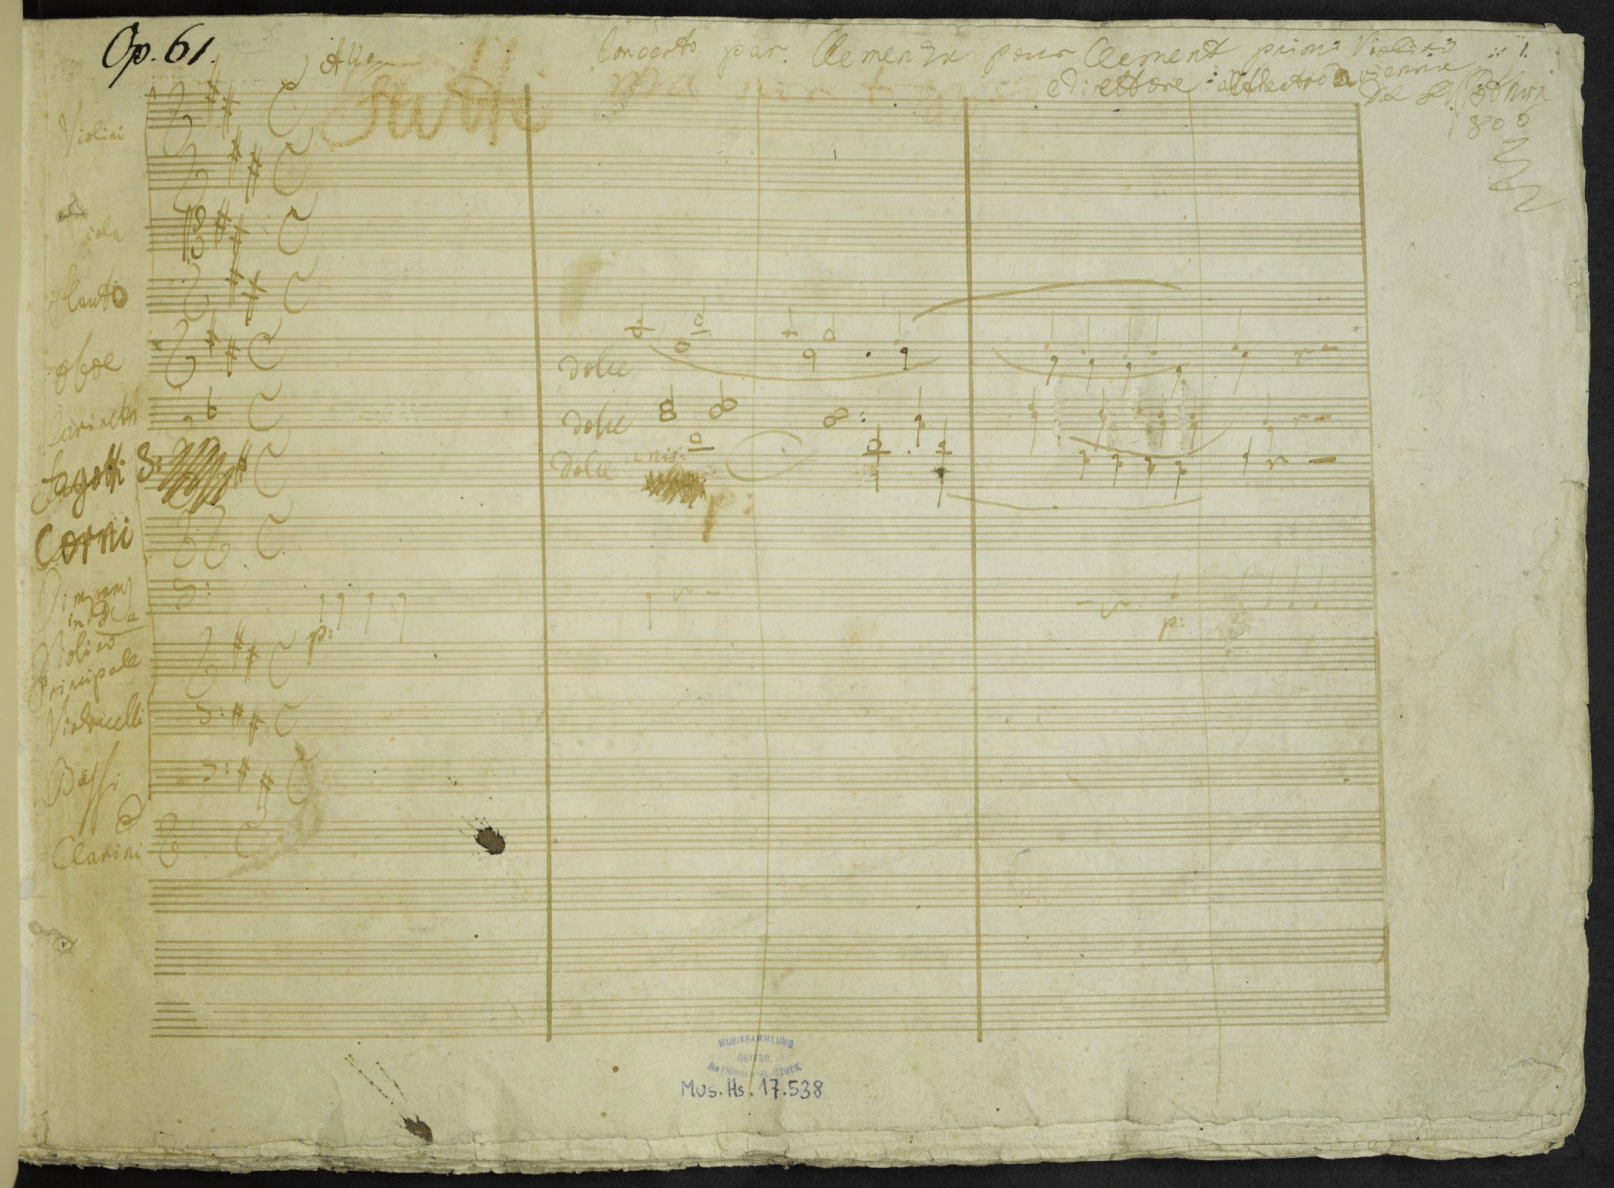 Op. 61.
Allo
Concerto par Clemenza pour Clement primo Violino
1.
e Direttore al theatro a vienne
Dal L. v. Bthvn
1806
Tutti
ma non t
Violini
Viola
Flauto
Oboe
dolce
Clarinetti
dolce
Fagotti
dolce unis:
p:
Corni
Timpani
in D A
p:
p:
Violino
Principale
Violoncelli
Bassi
Clarini
MUSIKSAMMLUNG
ÖSTERR.
NATIONALBIBLIOTHEK
Mus. Hs. 17.538